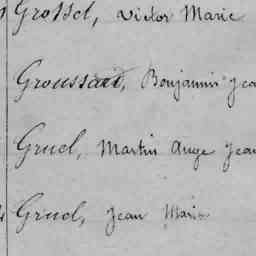 Grosset, Victor Marie
Groussard, Benjamin Jea
Gruel, Martin Ange Jean
Gruel, Jean Marie